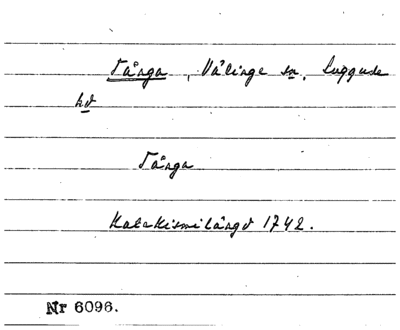 Tånga, Välinge sn, Luggude
hd
Tånga
Katekismilängd 1742.
Nr 6096.